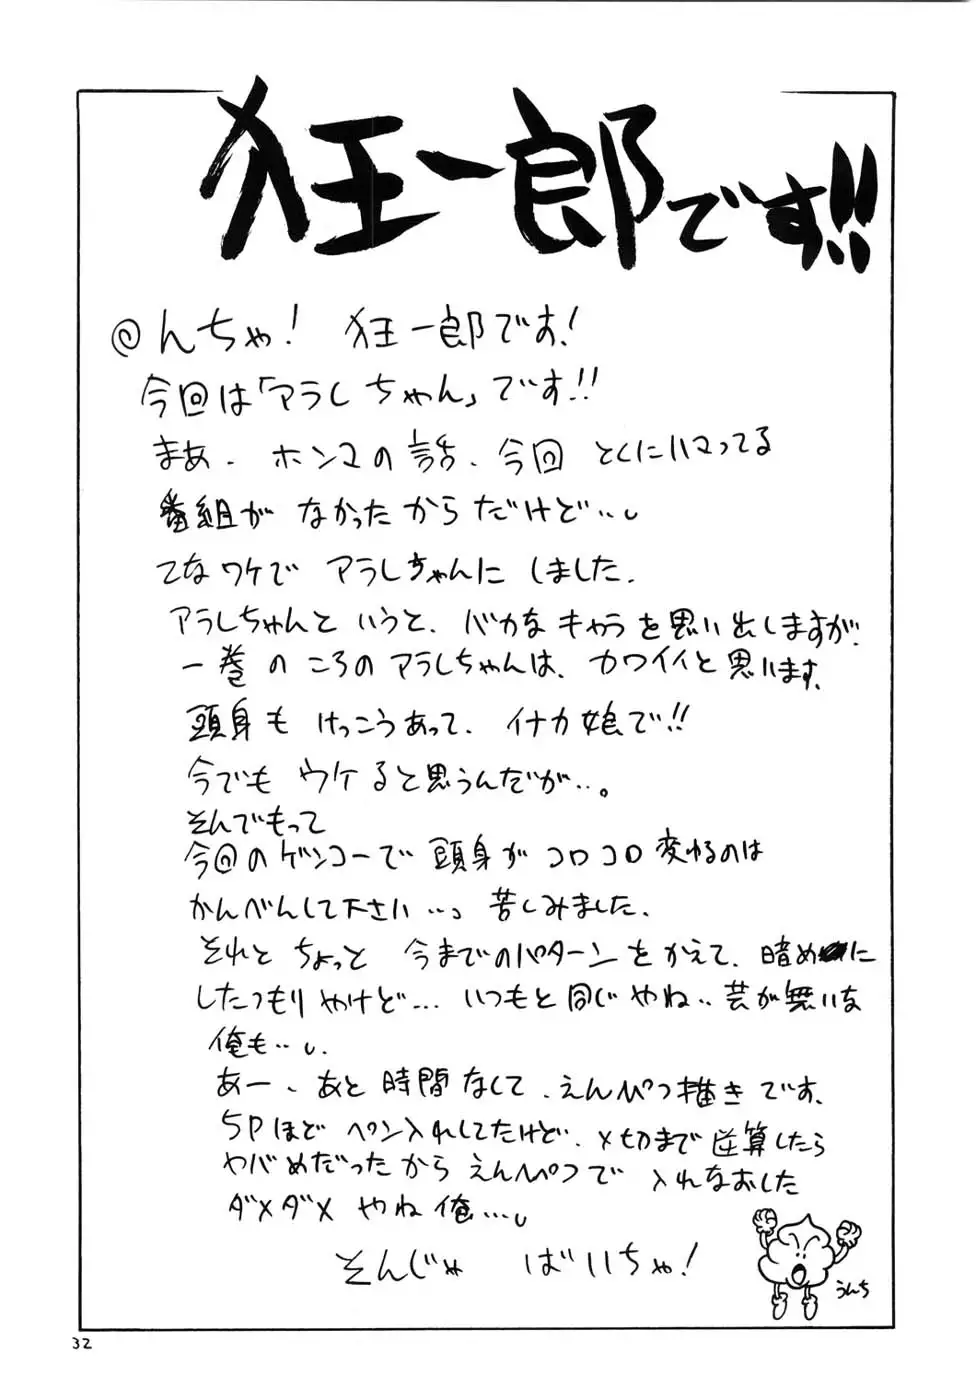 狂一郎です!!
@んちゃ! 狂一郎です!
今回は「アラレちゃん」です!!
まぁ、ホンマの話、今回とくにハマってる
番組がなかったからだけど…。
てなワケでアラレちゃんにしました。
アラレちゃんというと、バカなキャラを思い出しますが、
一巻のころのアラレちゃんは、カワイイと思います。
頭身もけっこうあって、イナカ娘で!!
今でもウケると思うんだが…。
そんでもって
今回のゲンコーで頭身がコロコロ変わるのは
かんべんして下さい…。苦しみました。
それとちょっと今までのパターンをかえて、暗めに
したつもりやけど…。いつもと同じやね…芸が無いな
俺も…。
あー、あと時間なくて、えんぴつ描きです。
5Pほどペン入れしてたけど、〆切まで逆算したら
ヤバめだったからえんぴつで入れなおしました
ダメダメやね俺…。
そんじゃ ばいちゃ!
うんち
32